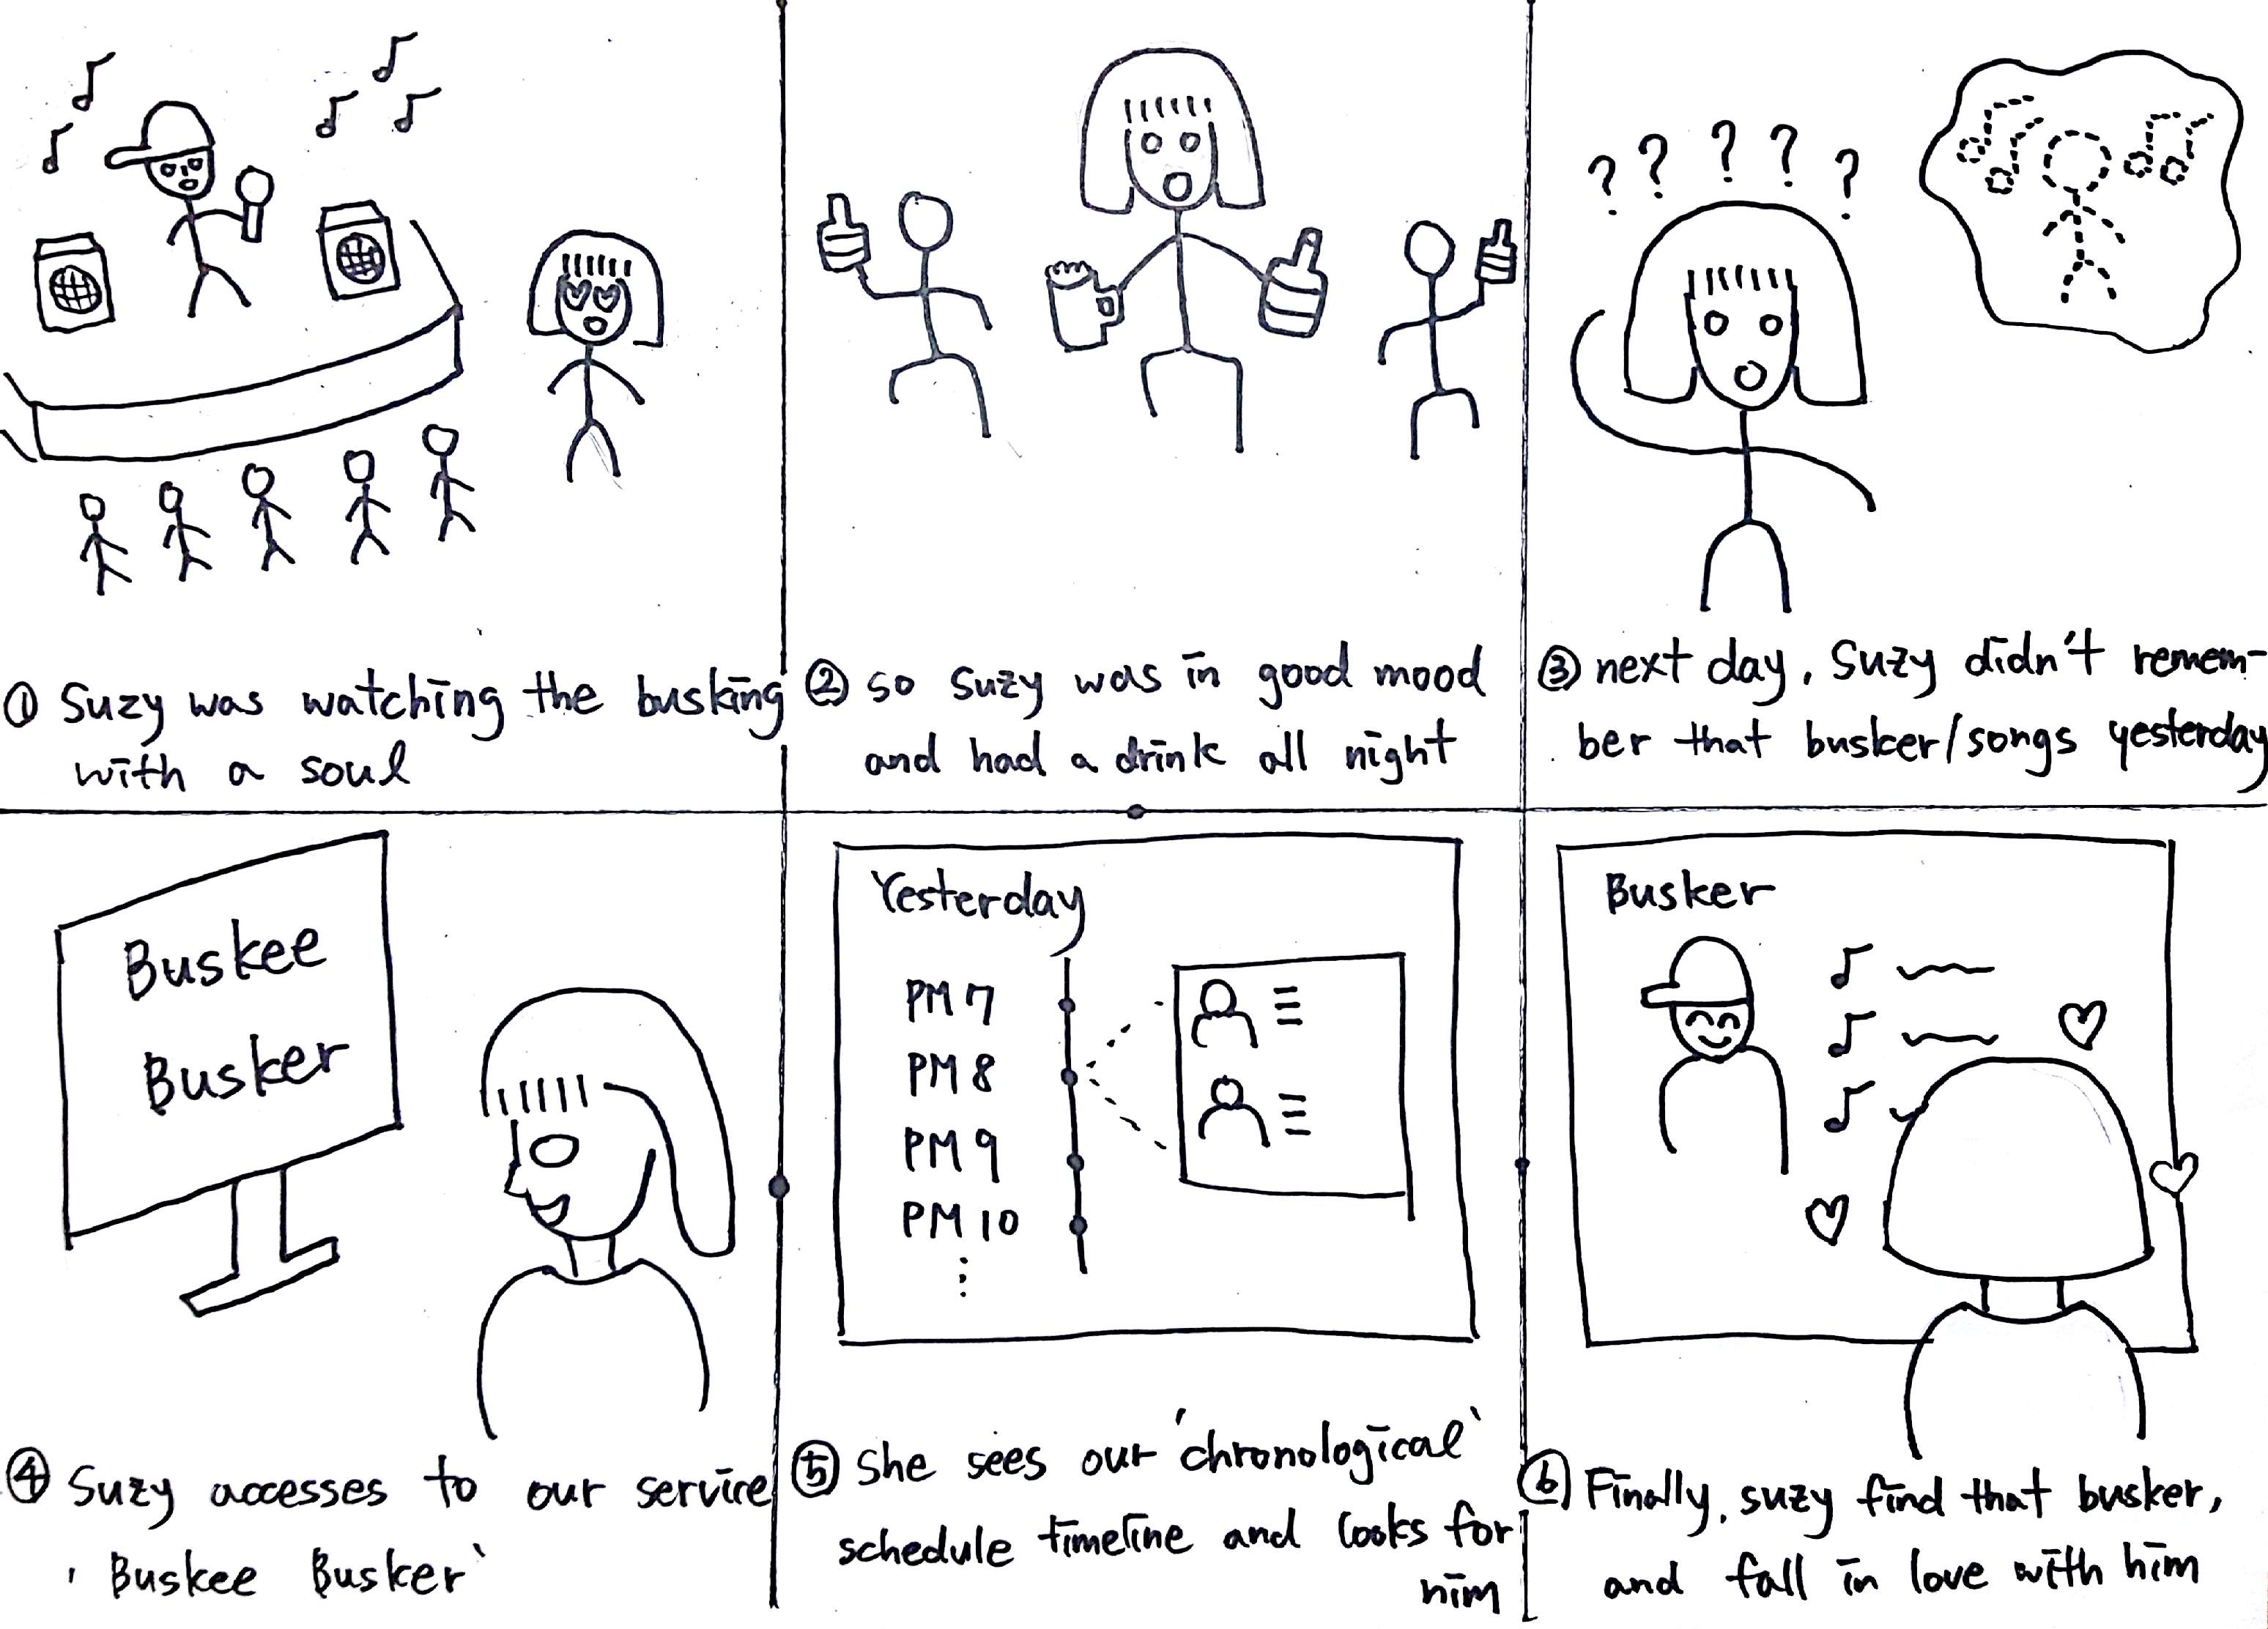 ? ? ? ? ?
① Suzy was watching the busking
with a soul
② so suzy was in good mood
and had a drink all night
③ next day, Suzy didn't remem-
ber that busker/songs yesterday
Buskee
Busker
④ Suzy accesses to our service
'Buskee Busker'
Yesterday
PM 7
PM 8
PM 9
PM 10
⋮
⑤ she sees our 'chronological'
schedule timeline and looks for
him
Busker
⑥ Finally, suzy find that busker,
and fall in love with him